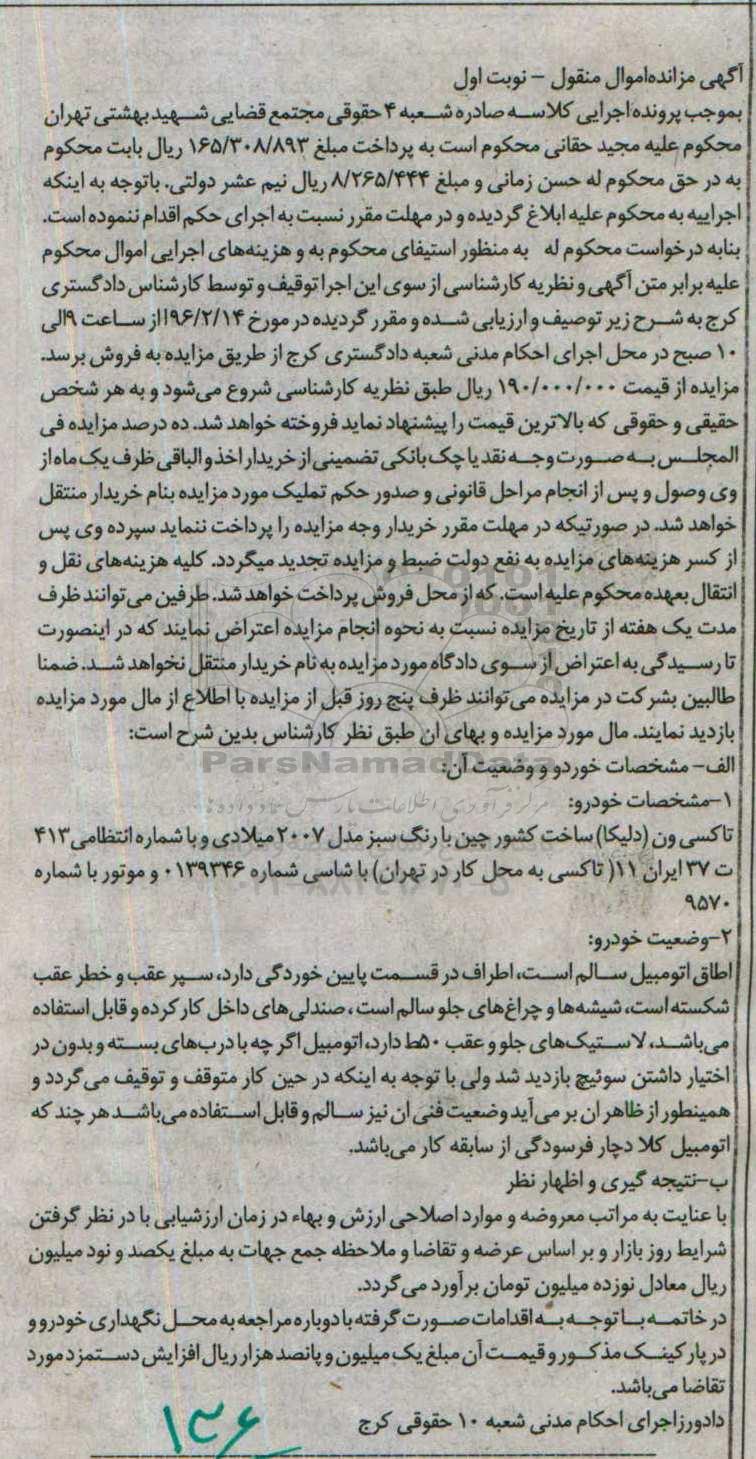 آگهی مزایده‌اموال منقول – نوبت اول
بموجب پرونده اجرایی کلاسه صادره شعبه ۴ حقوقی مجتمع قضایی شهید بهشتی تهران
محکوم علیه مجید حقانی محکوم است به پرداخت مبلغ ۱۶۵/۳۰۸/۸۹۳ ریال بابت محکوم
به در حق محکوم له حسن زمانی و مبلغ ۸/۲۶۵/۴۴۴ ریال نیم عشر دولتی. باتوجه به اینکه
اجراییه به محکوم علیه ابلاغ گردیده و در مهلت مقرر نسبت به اجرای حکم اقدام ننموده است.
بنابه درخواست محکوم له به منظور استیفای محکوم به و هزینه‌های اجرایی اموال محکوم
علیه برابر متن آگهی و نظریه کارشناسی از سوی این اجرا توقیف و توسط کارشناس دادگستری
کرج به شرح زیر توصیف و ارزیابی شده و مقرر گردیده در مورخ ۹۶/۲/۱۴ از ساعت ۹الی
۱۰ صبح در محل اجرای احکام مدنی شعبه دادگستری کرج از طریق مزایده به فروش برسد.
مزایده از قیمت ۱۹۰/۰۰۰/۰۰۰ ریال طبق نظریه کارشناسی شروع می‌شود و به هر شخص
حقیقی و حقوقی که بالاترین قیمت را پیشنهاد نماید فروخته خواهد شد. ده درصد مزایده فی
المجلس به صورت وجه نقد یا چک بانکی تضمینی از خریدار اخذ و الباقی ظرف یک ماه از
وی وصول و پس از انجام مراحل قانونی و صدور حکم تملیک مورد مزایده بنام خریدار منتقل
خواهد شد. در صورتیکه در مهلت مقرر خریدار وجه مزایده را پرداخت ننماید سپرده وی پس
از کسر هزینه‌های مزایده به نفع دولت ضبط و مزایده تجدید میگردد. کلیه هزینه‌های نقل و
انتقال بعهده محکوم علیه است. که از محل فروش پرداخت خواهد شد. طرفین می‌توانند ظرف
مدت یک هفته از تاریخ مزایده نسبت به نحوه انجام مزایده اعتراض نمایند که در اینصورت
تا رسیدگی به اعتراض از سوی دادگاه مورد مزایده به نام خریدار منتقل نخواهد شد. ضمنا
طالبین بشرکت در مزایده می‌توانند ظرف پنج روز قبل از مزایده با اطلاع از مال مورد مزایده
بازدید نمایند. مال مورد مزایده و بهای ان طبق نظر کارشناس بدین شرح است:
ParsNamadData
الف- مشخصات خوردو و وضعیت آن:
۱-مشخصات خودرو:
تاکسی ون (دلیکا) ساخت کشور چین با رنگ سبز مدل ۲۰۰۷ میلادی و با شماره انتظامی ۴۱۳
ت ۳۷ ایران ۱۱( تاکسی به محل کار در تهران) با شاسی شماره ۰۱۳۹۳۴۶ و موتور با شماره
۹۵۷۰
۲-وضعیت خودرو:
اطاق اتومبیل سالم است، اطراف در قسمت پایین خوردگی دارد، سپر عقب و خطر عقب
شکسته است، شیشه‌ها و چراغ‌های جلو سالم است ، صندلی‌های داخل کار کرده و قابل استفاده
می‌باشد، لاستیک‌های جلو و عقب ۵۰ط دارد، اتومبیل اگر چه با درب‌های بسته و بدون در
اختیار داشتن سوئیچ بازدید شد ولی با توجه به اینکه در حین کار متوقف و توقیف می‌گردد و
همینطور از ظاهر ان بر می‌آید وضعیت فنی ان نیز سالم و قابل استفاده می‌باشد هر چند که
اتومبیل کلا دچار فرسودگی از سابقه کار می‌باشد.
ب-نتیجه گیری و اظهار نظر
با عنایت به مراتب معروضه و موارد اصلاحی ارزش و بهاء در زمان ارزشیابی با در نظر گرفتن
شرایط روز بازار و بر اساس عرضه و تقاضا و ملاحظه جمع جهات به مبلغ یکصد و نود میلیون
ریال معادل نوزده میلیون تومان برآورد می‌گردد.
در خاتمه با توجه به اقدامات صورت گرفته با دوباره مراجعه به محل نگهداری خودرو و
در پارکینک مذکور و قیمت آن مبلغ یک میلیون و پانصد هزار ریال افزایش دستمزد مورد
تقاضا می‌باشد.
دادورزاجرای احکام مدنی شعبه ۱۰ حقوقی کرج
۱۳۶